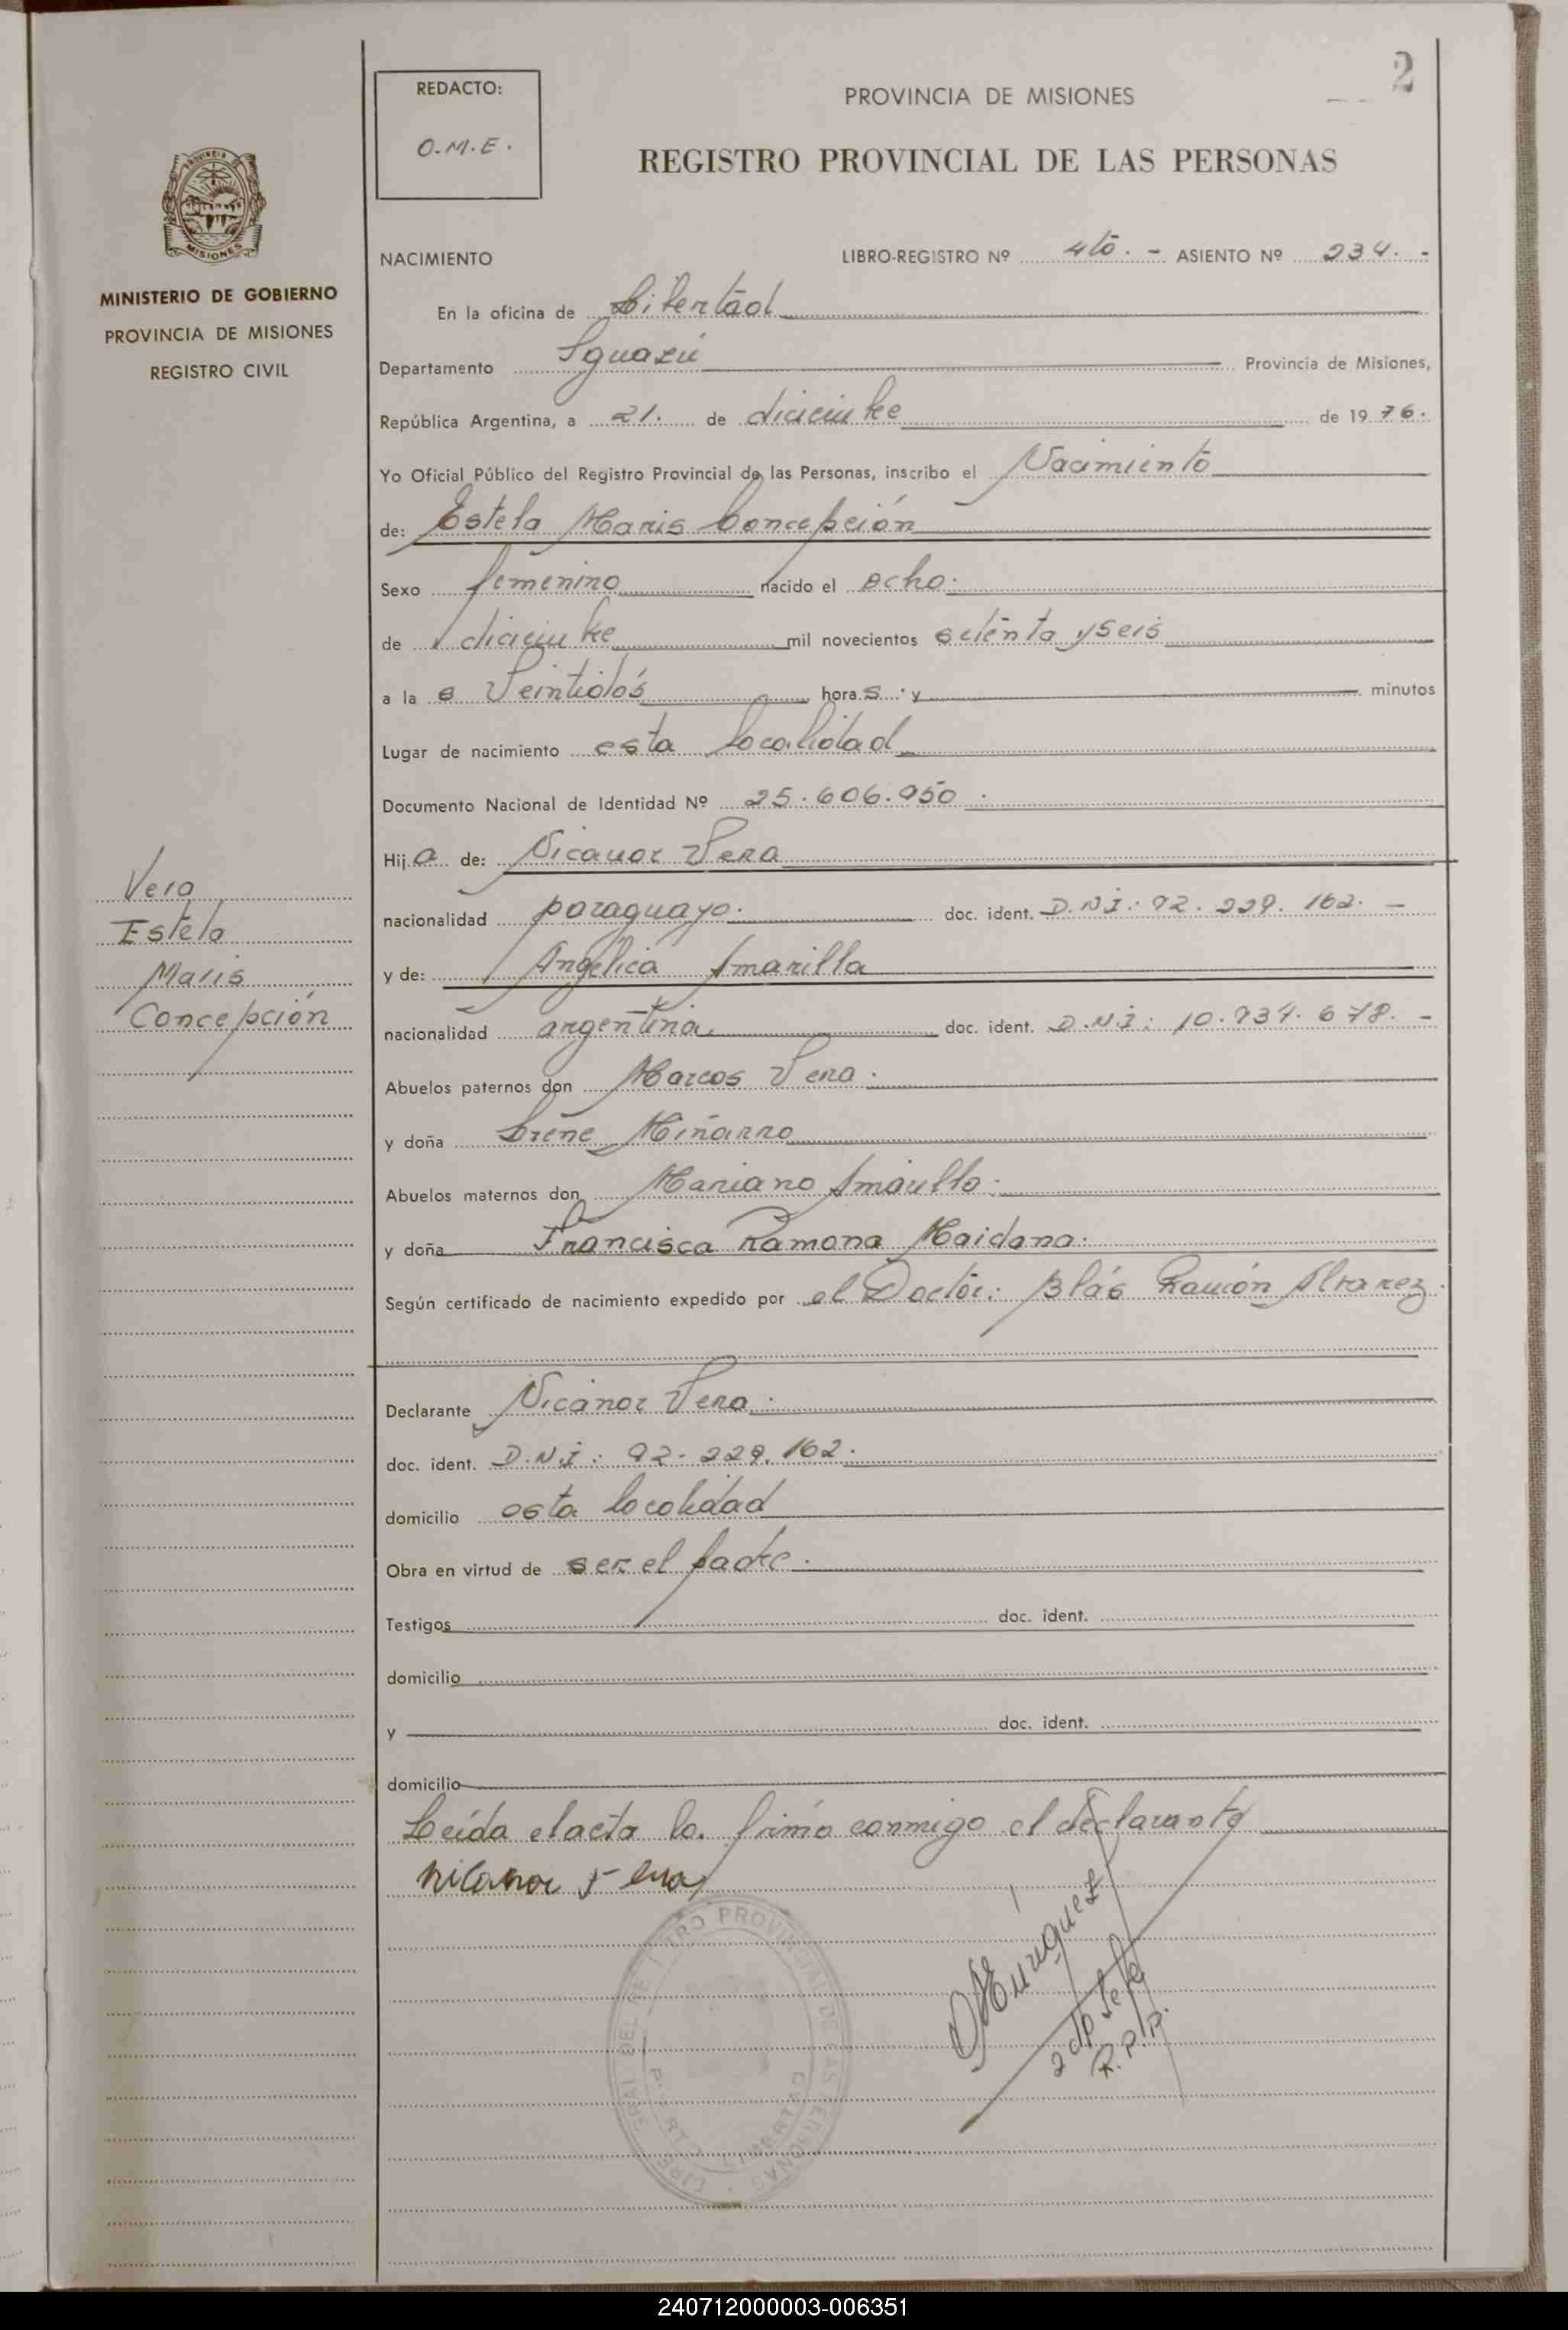 2
REDACTO:
O.M.E.
PROVINCIA DE MISIONES
REGISTRO PROVINCIAL DE LAS PERSONAS
PROVINCIA DE
MISIONES
MINISTERIO DE GOBIERNO
PROVINCIA DE MISIONES
REGISTRO CIVIL
NACIMIENTO LIBRO-REGISTRO Nº 4tō. - ASIENTO Nº 234. -
En la oficina de Libertad
Departamento Iguazú Provincia de Misiones,
República Argentina, a 21. de diciembre de 1976.
Yo Oficial Público del Registro Provincial de las Personas, inscribo el Nacimiento
de: Estela Maris Concepción
Sexo femenino nacido el ocho.
de diciembre mil novecientos setenta y seis
a la s Veintidós hora s. y minutos
Lugar de nacimiento esta localidad
Documento Nacional de Identidad Nº 25.606.950.
Hij a de: Nicanor Vera
nacionalidad paraguayo. doc. ident. D.N.I: 92.229.162. -
y de: Angélica Amarilla
nacionalidad argentina doc. ident. D.N.I: 10.937.678. -
Abuelos paternos don Marcos Vera.
y doña Irene Miñarro
Abuelos maternos don Mariano Amarilla.
y doña Francisca Ramona Maidana.
Según certificado de nacimiento expedido por el Doctor: Blás Ramón Alvarez.
Declarante Nicanor Vera.
doc. ident. D.N.I: 92.229.162.
domicilio esta localidad
Obra en virtud de ser el padre.
Testigos doc. ident.
domicilio
y doc. ident.
domicilio
Leída el acta la firma conmigo el declarante
Nicanor Vera
Jefe
R.P.P.
Vera
Estela
Maris
Concepción
240712000003-006351